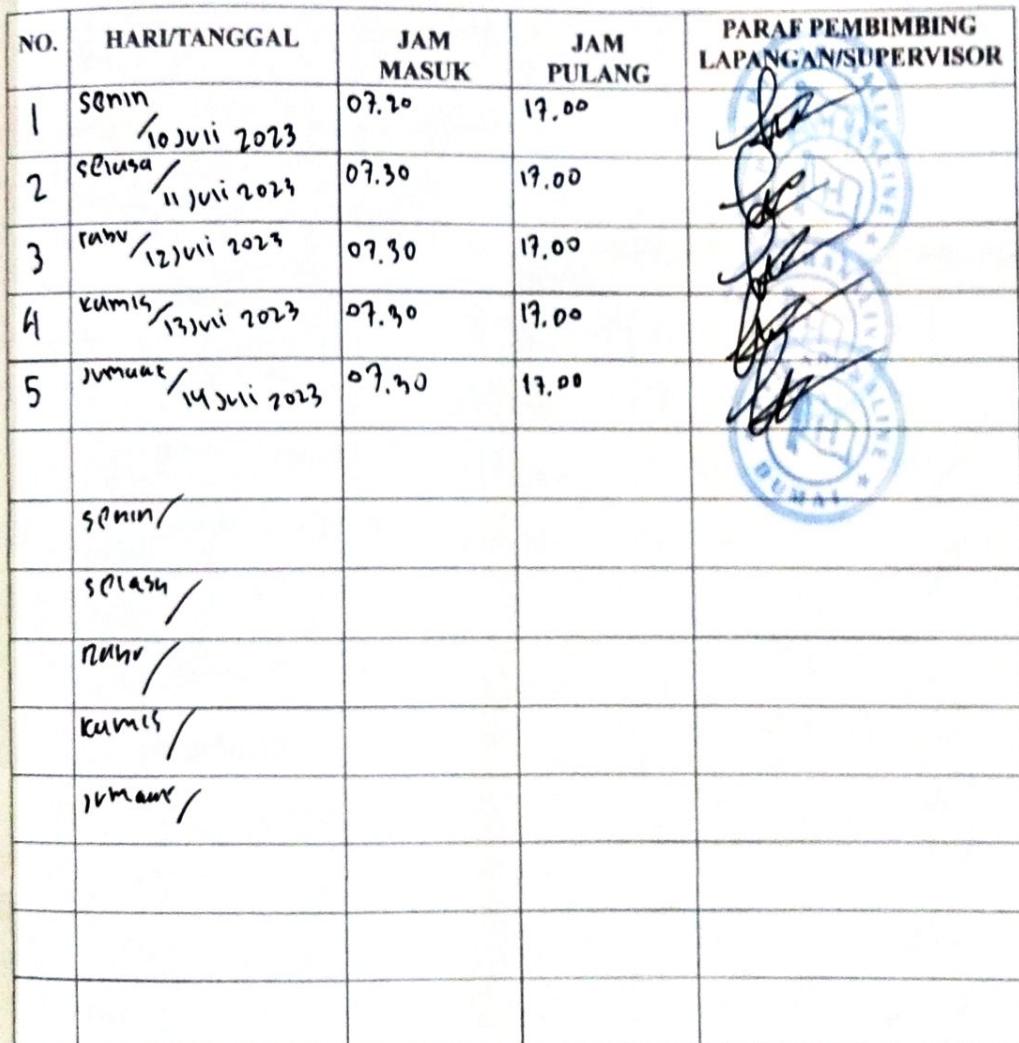 NO. HARI/TANGGAL JAM MASUK JAM PULANG PARAF PEMBIMBING LAPANGAN/SUPERVISOR
1 senin / 10 juli 2023 07.20 17.00
2 selasa / 11 juli 2023 07.30 17.00
3 rabu / 12 juli 2023 07.30 17.00
4 kamis / 13 juli 2023 07.30 17.00
5 jumaat / 14 juli 2023 07.30 17.00
senin /
selasa /
rabu /
kamis /
jumaat /
DUMAI